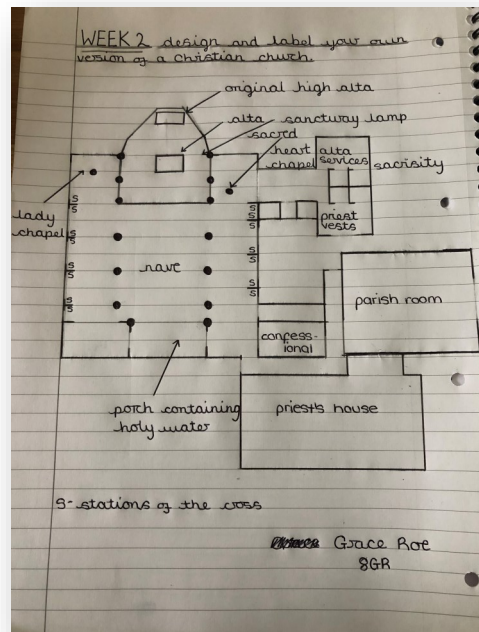 WEEK 2 design and label your own
version of a christian church.
original high alta
alta
sanctuary lamp
sacred
heart
chapel
alta
services
sacrisity
priest
vests
lady
chapel
S
S
S
S
S
S
S
S
S
S
S
S
S
S
nave
parish room
confess-
ional
porch containing
holy water
priest's house
S-stations of the cross
Grace Roe
8GR